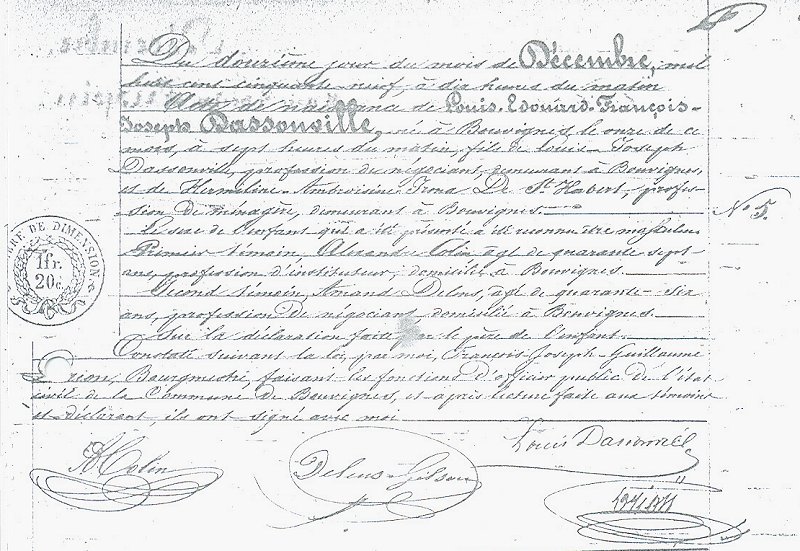 Du douzième jour du mois de Décembre, mil
huit cent cinquante neuf, à dix heures du matin
Acte de naissance de Louis-Edouard-François-
Joseph Dassonville, né à Bouvignes, le onze de ce
mois, à sept heures du matin, fils de Louis-Joseph
Dassonville, profession de négociant, demeurant à Bouvignes,
et de Hermeline-Ambroisine De St Hubert, profes-
sion de ménagère, demeurant à Bouvignes.
N° 5.
Le sexe de l'enfant qui a été présenté a été reconnu être masculin
Premier témoin, Colin, âgé de quarante sept
ans, profession d'instituteur, domicilié à Bouvignes.
Second témoin, Amand Delens, âgé de quarante-six
ans, profession de négociant domicilié à Bouvignes.
Sur la déclaration faite par le père de l'enfant.
Constaté suivant la loi, par moi, François-Joseph-Guillaume
Bourgmestre, faisant les fonctions d'officier public de l'état
civil de la Commune de Bouvignes, et après lecture faite aux témoins
et déclarant, ils ont signé avec moi
TIMBRE DE DIMENSION
1fr.
20c.
Colin
Delens-Gilson
Louis Dassonville